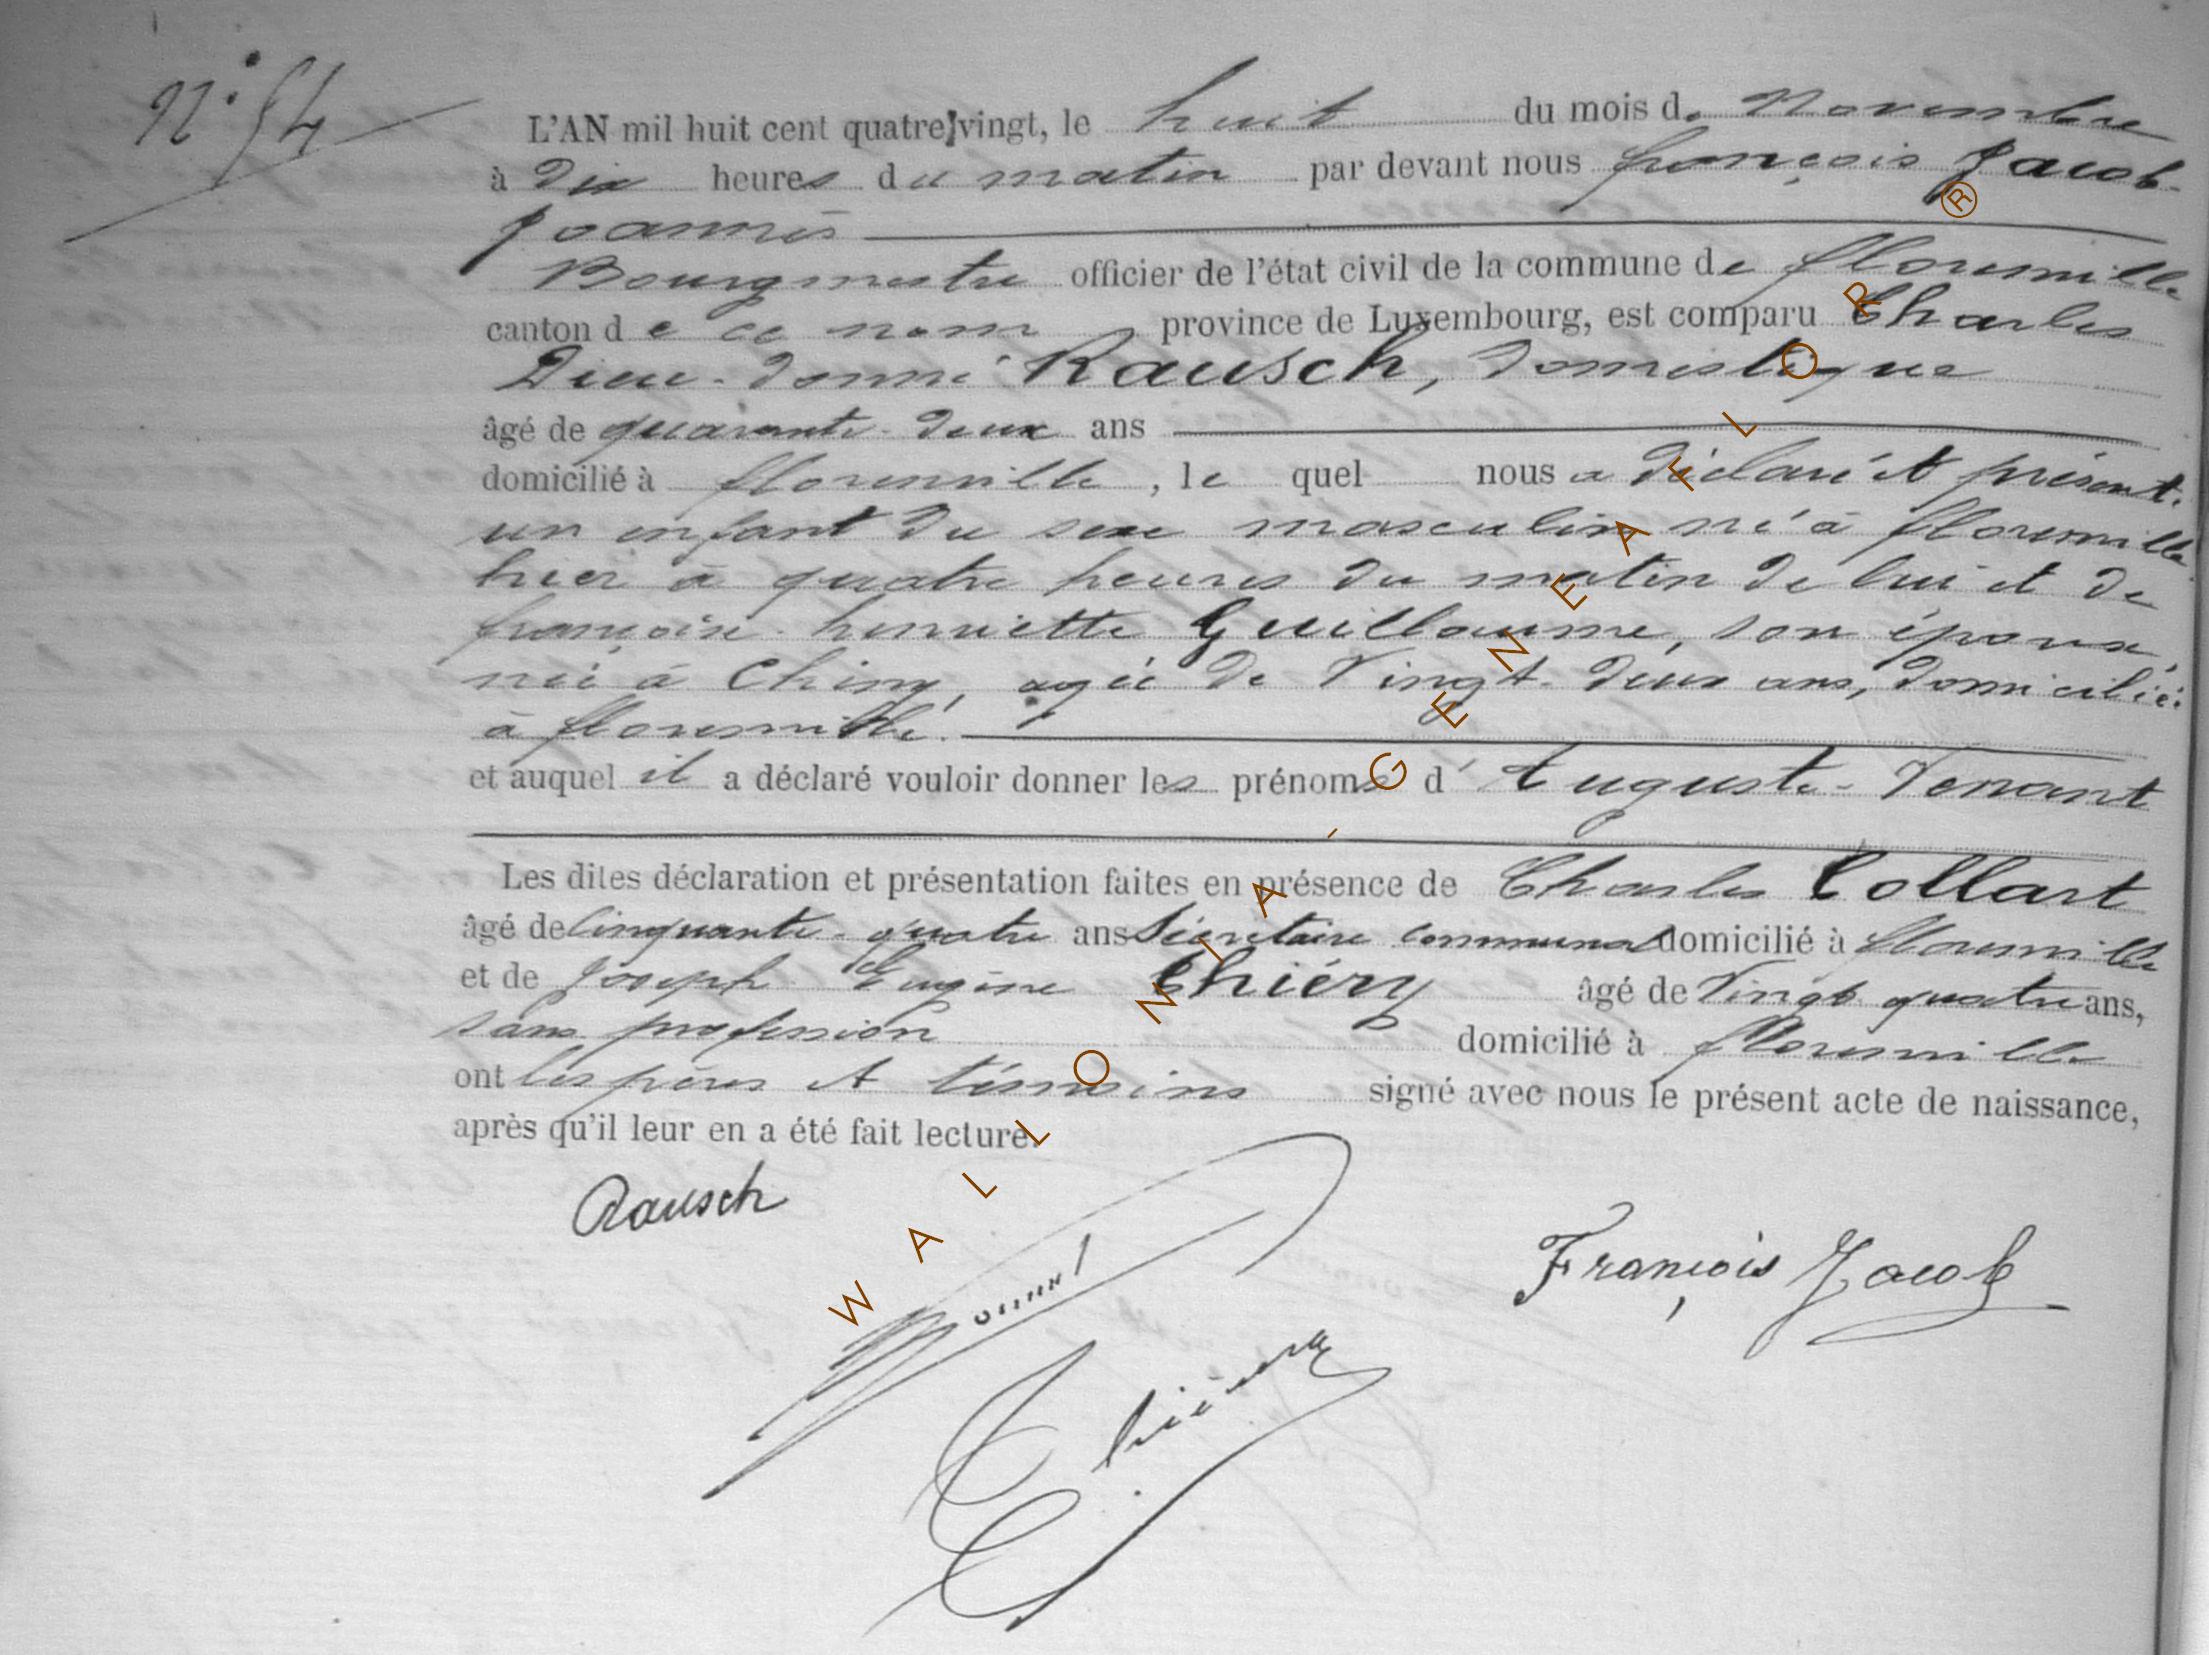 N° 54
L'AN mil huit cent quatre-vingt, le huit du mois de Novembre
à dix heures du matin par devant nous françois Jacob-
Joannès
Bourgmestre officier de l'état civil de la commune de florenville
canton de ce nom province de Luxembourg, est comparu Charles
Dieu-donné Rausch, domestique
âgé de quarante-deux ans
domicilié à florenville, lequel nous a déclaré et présenté
un enfant du sexe masculin né à florenville
hier à quatre heures du matin de lui et de
françoise-henriette Guillaume, son épouse,
née à Chiny, agée de Vingt-deux ans, domiciliée
à florenville.
et auquel il a déclaré vouloir donner les prénoms d'Auguste-Venant
Les dites déclaration et présentation faites en présence de Charles Collart
âgé de Cinquante-quatre ans Sécretaire communal domicilié à florenville
et de Joseph Eugène Thiéry âgé de Vingt quatre ans,
sans profession domicilié à florenville
ont les pères et témoins signé avec nous le présent acte de naissance,
après qu'il leur en a été fait lecture.
Rausch
François Jacob
Thiéry
WALLONIA-GENEAFLOR®